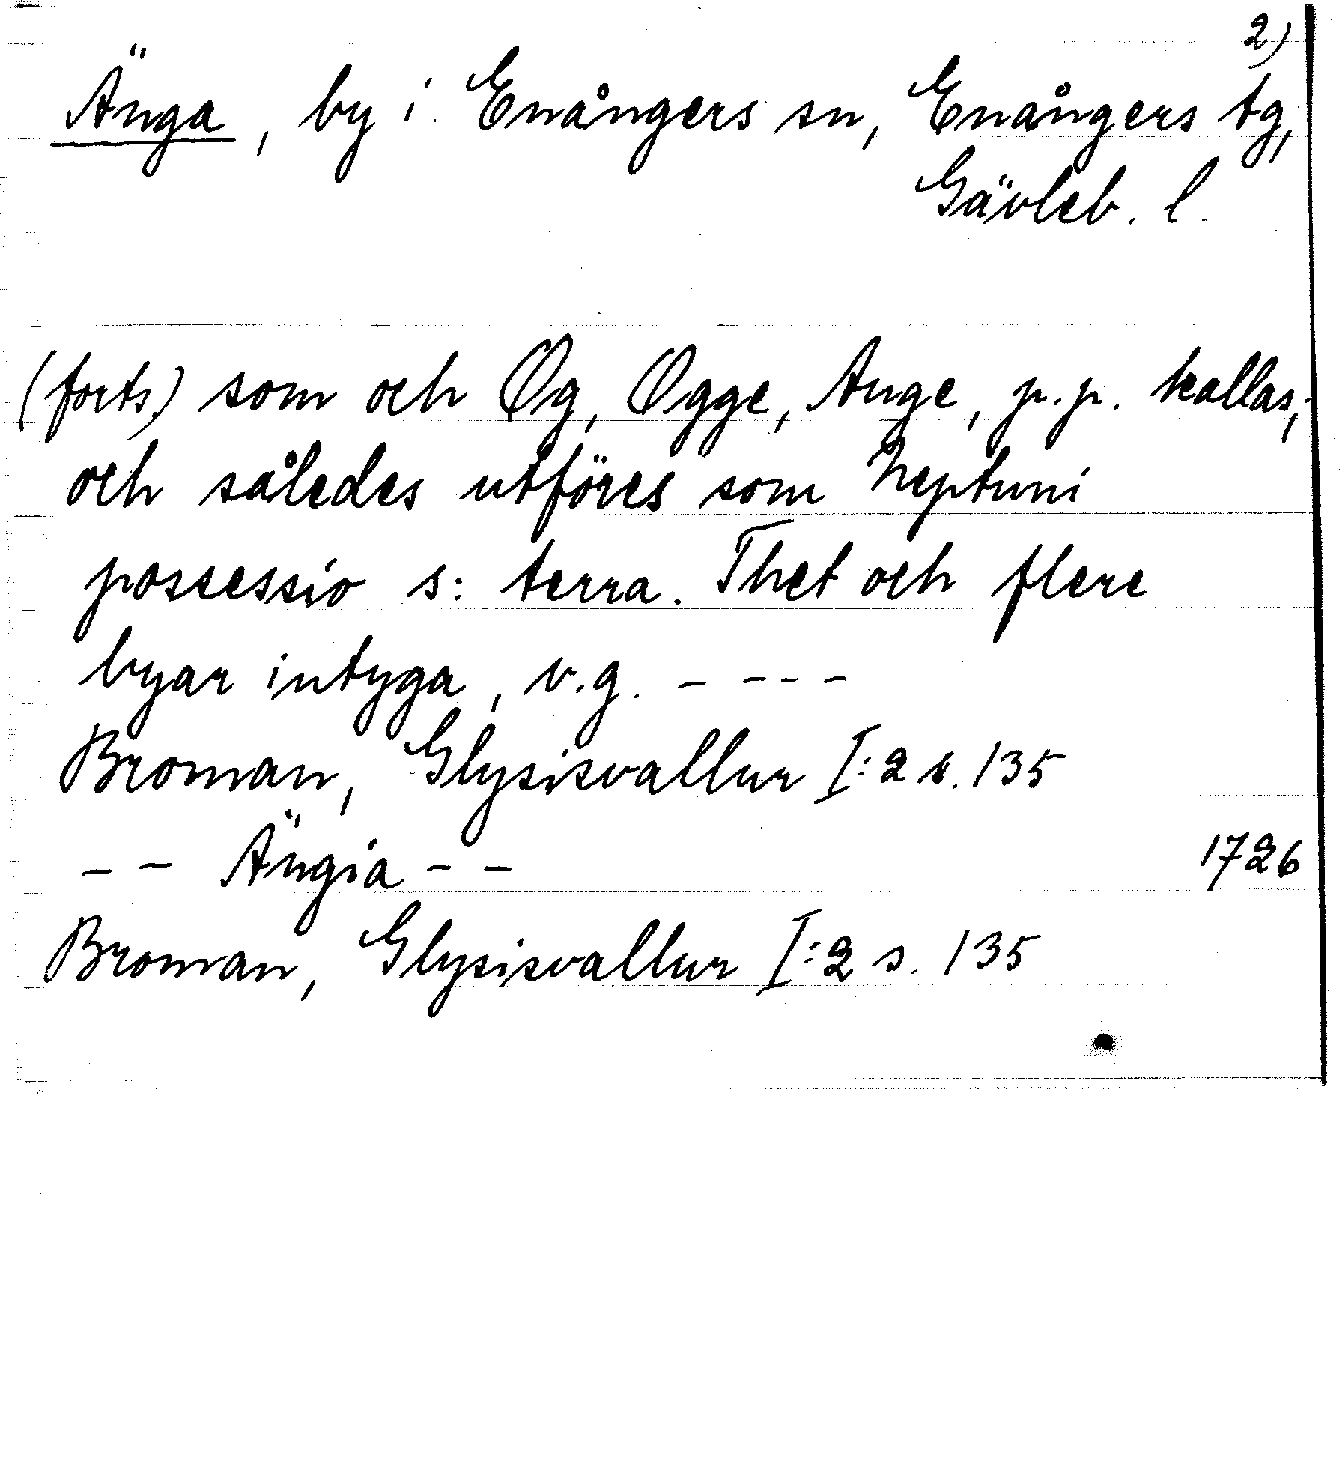 2)
Änga, by i Enångers sn, Enångers tg,
Gävleb. l.
(forts) som och Og, Ogge, Ange, p.p. kallas;
och således utföres som Neptuni
possessio s: terra. Thet och flere
byar intyga, v.g. - - - -
Broman, Glysisvallur I:2 s. 135
- - Ängia - - 1726
Broman, Glysisvallur I:2 s. 135